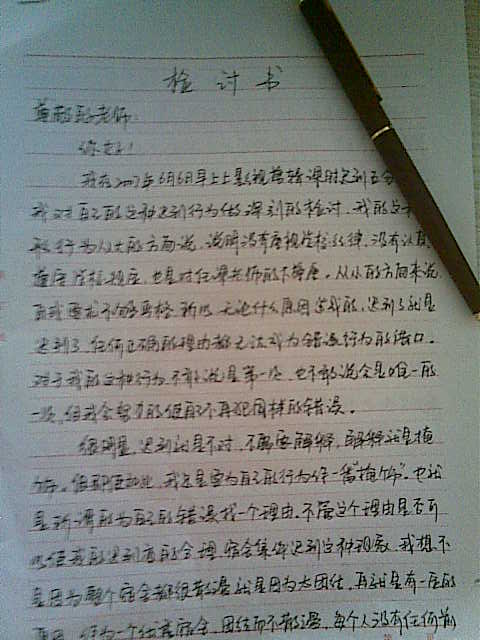 检讨书
尊敬的老师
你好！
我在2007年6月6日早上上影视剪辑课时迟到五分
我对自己的这种迟到行为做深刻的检讨，我的这
的行为从大的方面说，说明没有重视学校纪律，没有认真
遵守学校规定，也是对任课老师的不尊重。从小的方面来说
自我要求不够严格，所以无论什么原因造成的，迟到了就是
迟到了，任何正确的理由都无法成为错误行为的借口。
对于我的这种行为不敢说是第一次，也不敢说会是唯一的
一次，但我会努力的做到不再犯同样的错误。
很明显，迟到就是不对，不需要解释，解释就是掩
饰。但即便如此，我还是要为自己的行为作一番"掩饰"。也就
是所谓的为自己的错误找一个理由，不管这个理由是否可
以使我的迟到变的合理，宿舍集体迟到这种现象，我想不
是因为整个宿舍都很散漫就是因为太团结，再就是有一定的
原因，作为一个优秀宿舍，团结而不散漫，每个人没有任何前